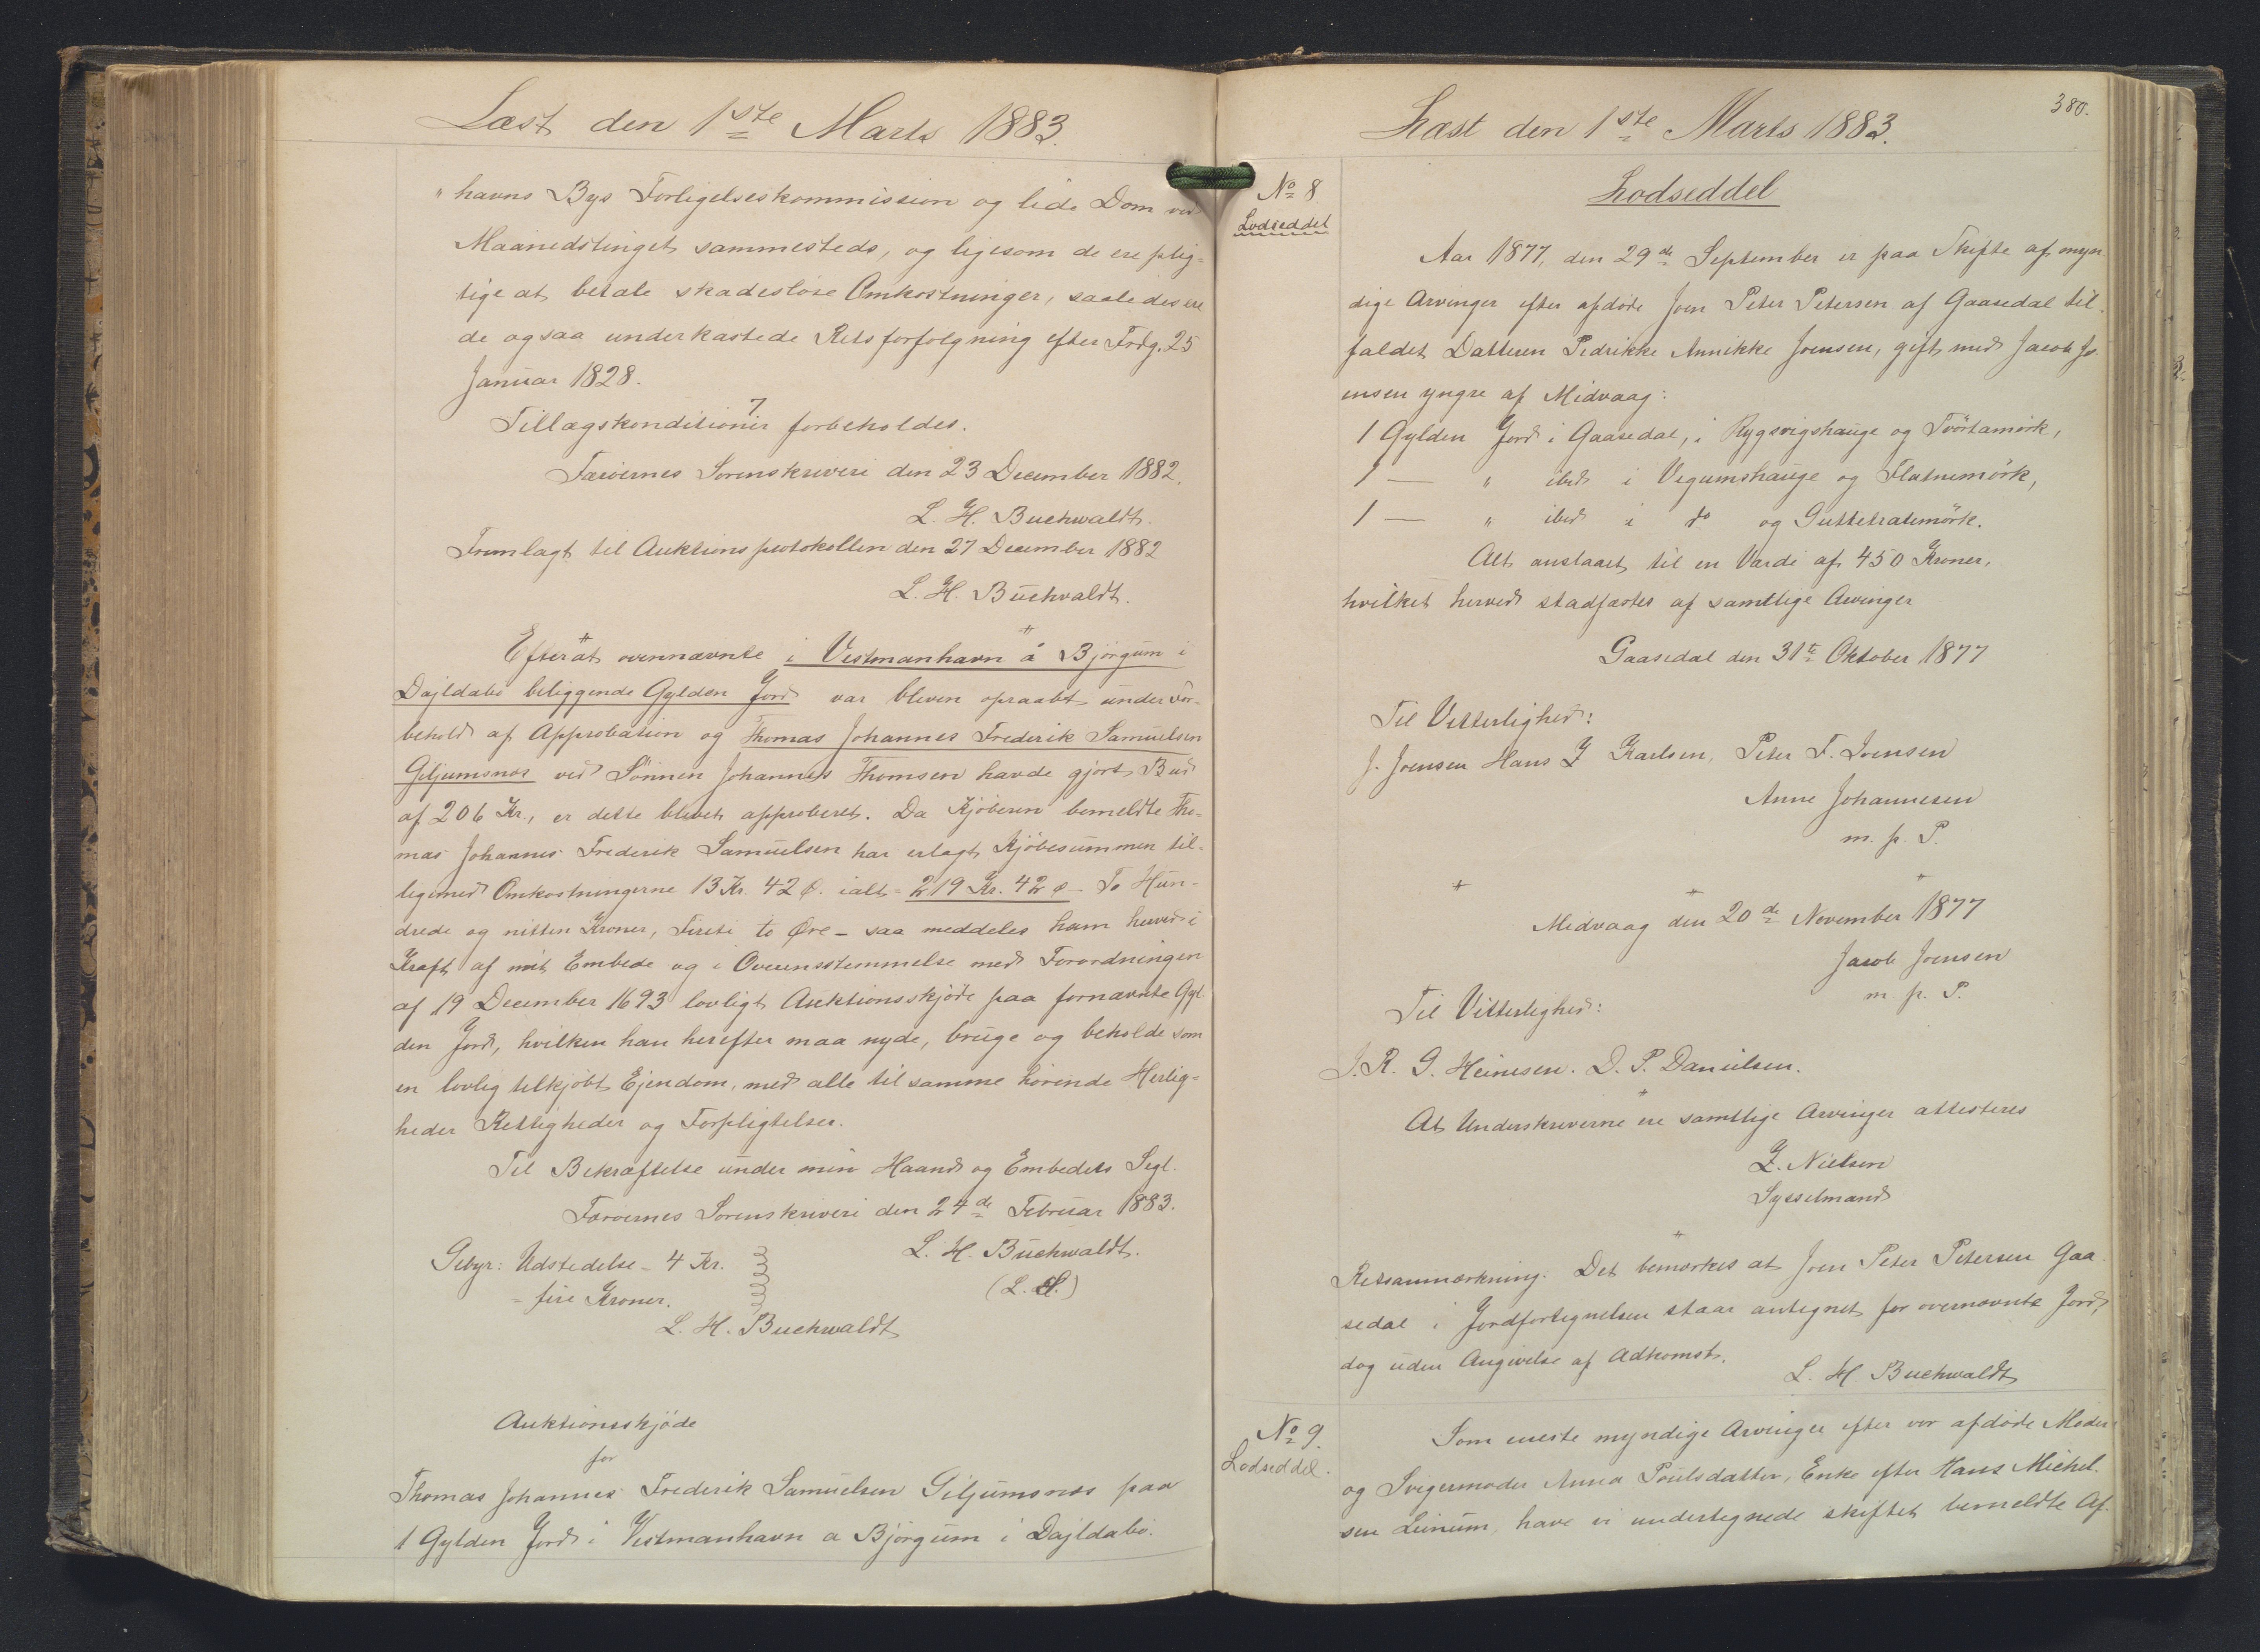 Læst den 1ste Marts 1883.
"havns Bys Forligelseskommission og lide Dom ved
Maanedstinget sammesteds, og ligesom de ere plig-
tige at betale skadesløse Omkostninger, saaledes ere
de ogsaa underkastede Retsforfølgning efter Frdg. 25
Januar 1828.
7
Tillægskonditioner forbeholdes.
Færøernes Sorenskriveri den 23 December 1882.
L. H. Buchwaldt.
Fremlagt til Auktionsprotokollen den 27 December 1882
L. H. Buchwaldt.
Efterat ovennævnte i Vestmanhavn å Bjørgum i
Dajldabø beliggende Gylden Jord var bleven opraabt under For-
behold af Approbation og Thomas Johannes Frederik Samuelsen
Giljumsnæs ved Sønnen Johannes Thomsen havde gjort Bud
af 206 Kr., er dette blevet approberet. Da Kjøberen bemeldte Tho-
mas Johannes Frederik Samuelsen har erlagt Kjøbesummen til-
ligemed Omkostningerne 13 Kr. 42 Ø. ialt = 219 Kr. 42 Ø - To Hun-
drede og nitten Kroner, Fireti to Øre - saa meddeles ham herved i
Kraft af mit Embede og i Overensstemmelse med Forordningen
af 19 December 1693 lovligt Auktionsskjøde paa fornævnte Gyl-
den Jord, hvilken han herefter maa nyde, bruge og beholde som
en lovlig tilkjøbt Ejendom, med alle til samme hørende Herlig-
heder Rettigheder og Forpligtelser.
Til Bekræftelse under min Haand og Embedets Segl.
Færøernes Sorenskriveri den 24de Februar 1883.
L. H. Buchwaldt.
(L. S.)
Gebyr: Udstedelse - 4 Kr.
= fire Kroner.
L. H. Buchwaldt
Auktionsskjøde
for
Thomas Johannes Frederik Samuelsen Giljumsnæs paa
1 Gylden Jord i Vestmanhavn a Bjørgum i Dajldabø.
380.
Læst den 1ste Marts 1883.
No 8
Lodseddel
Lodseddel
Aar 1877, den 29de September er paa Skifte af myn-
dige Arvinger efter afdøde Joen Peter Petersen af Gaasedal til-
faldet Datteren Pedrikke Annikke Joensen, gift med Jacob Jo-
ensen yngre af Midvaag:
1 Gylden Jord i Gaasedal, i Rygsvigshauge og Tvørtamørk,
1 — " ibid i Vegumshauge og Flatnemørk,
1 — " ibid i do og Guttetratemørk.
Alt anslaaet til en Værdi af 450 Kroner,
hvilket herved stadfæstes af samtlige Arvinger
Gaasedal den 31te Oktober 1877
Til Vitterlighed:
J. Joensen Hans J Karlsen, Peter F. Joensen
Anne Johannesen
m. p. P.
Midvaag den 20de November 1877
Jacob Joensen
m. p. P.
Til Vitterlighed:
J. R. G. Heinesen. D. P. Danielsen.
At Underskriverne ere samtlige Arvinger attesteres
Z. Nielsen
Sysselmand
Retsanmærkning. Det bemærkes at Joen Peter Petersen Gaa-
sedal i Jordfortegnelsen staar antegnet for ovennævnte Jord,
dog uden Angivelse af Adkomst.
L. H. Buchwaldt
No 9.
Lodseddel.
Som eneste myndige Arvinger efter vor afdøde Moder
og Svigermoder Anna Poulsdatter, Enke efter Hans Michel-
sen Leinum, have vi undertegnede skiftet bemeldte Af-